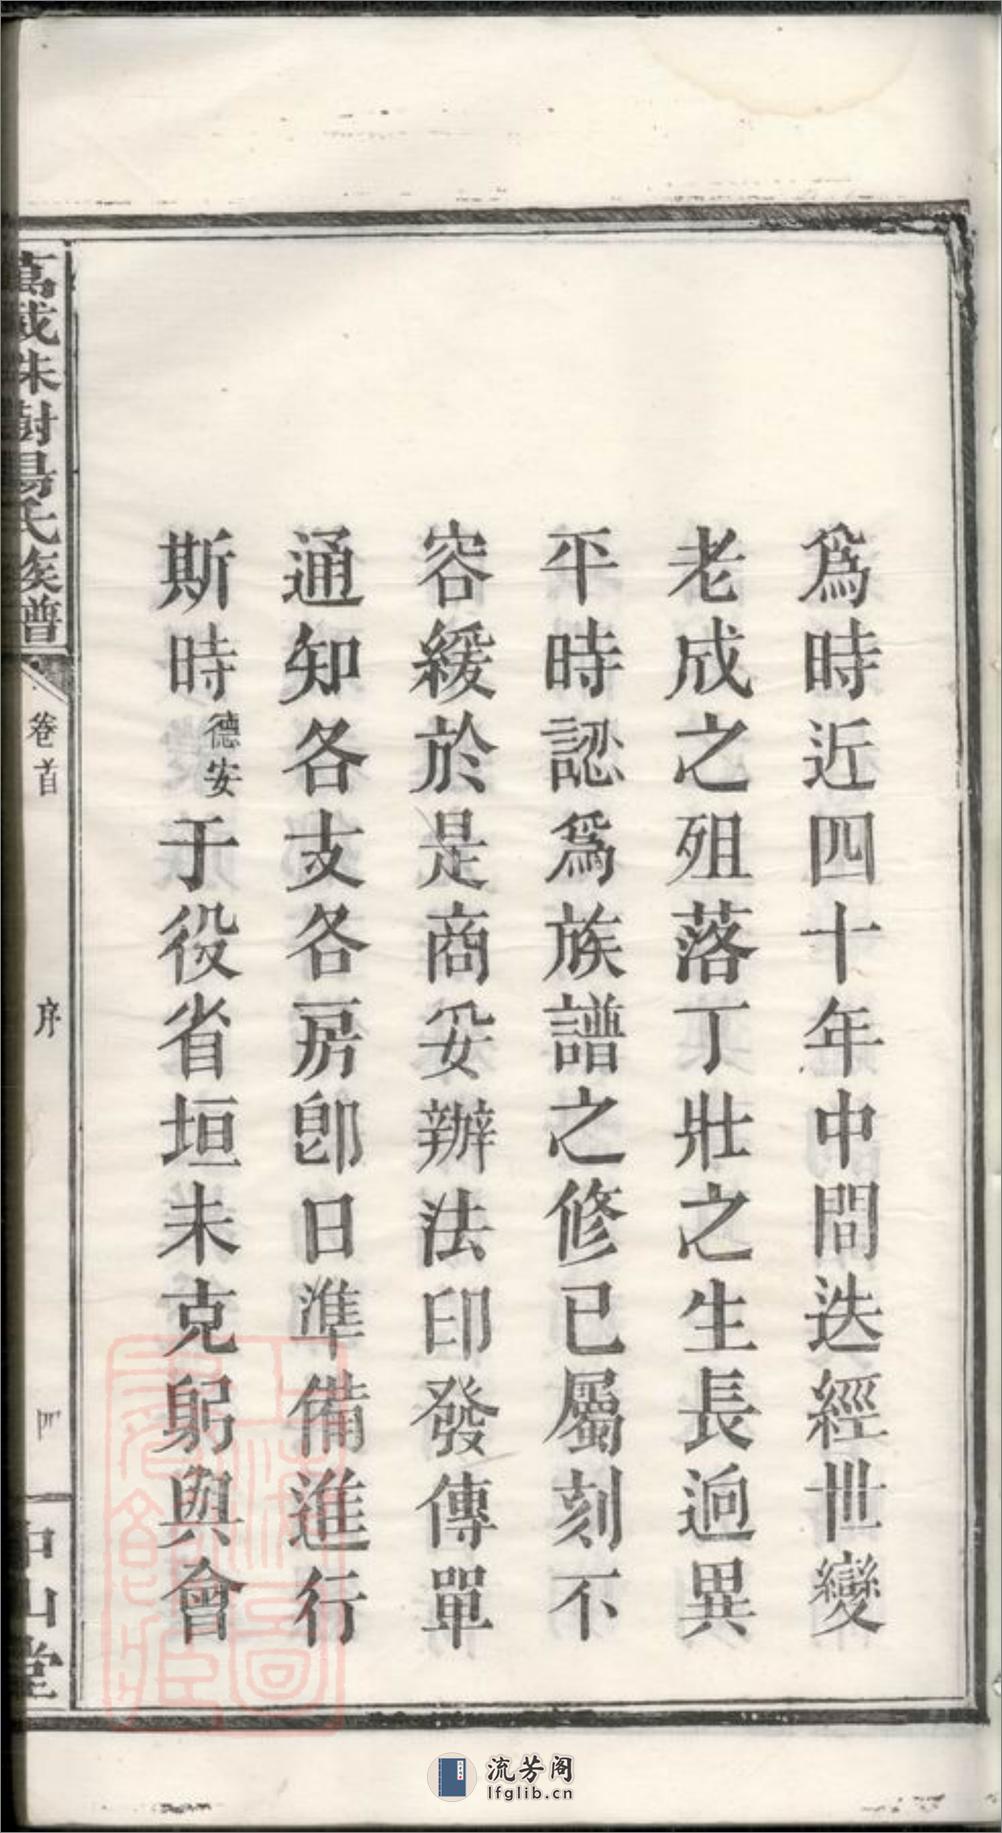 為時近四十年中間迭經世變
老成之殂落丁壯之生長逈異
平時認為族譜之修已屬刻不
容緩於是商妥辦法印發傳單
通知各支各房卽日準備進行
斯時德安于役省垣未克躬與會
萬載株樹昜氏族譜
卷首
序
四
中山堂
流芳阁
lfglib.cn